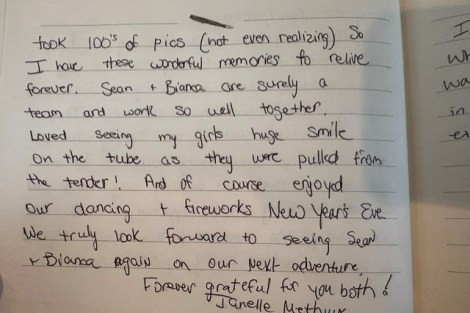 took 100's of pics (not even realizing) So
I have these wonderful memories to relive
forever. Sean + Bianca are surely a
team and work so well together.
Loved seeing my girls huge smile
On the tube as they were pulled from
the tender! And of course enjoyed
our dancing + fireworks New Year's Eve
We truly look forward to seeing Sean
+ Bianca again on our next adventure.
Forever grateful for you both!
Janelle
I
wh
wa
in